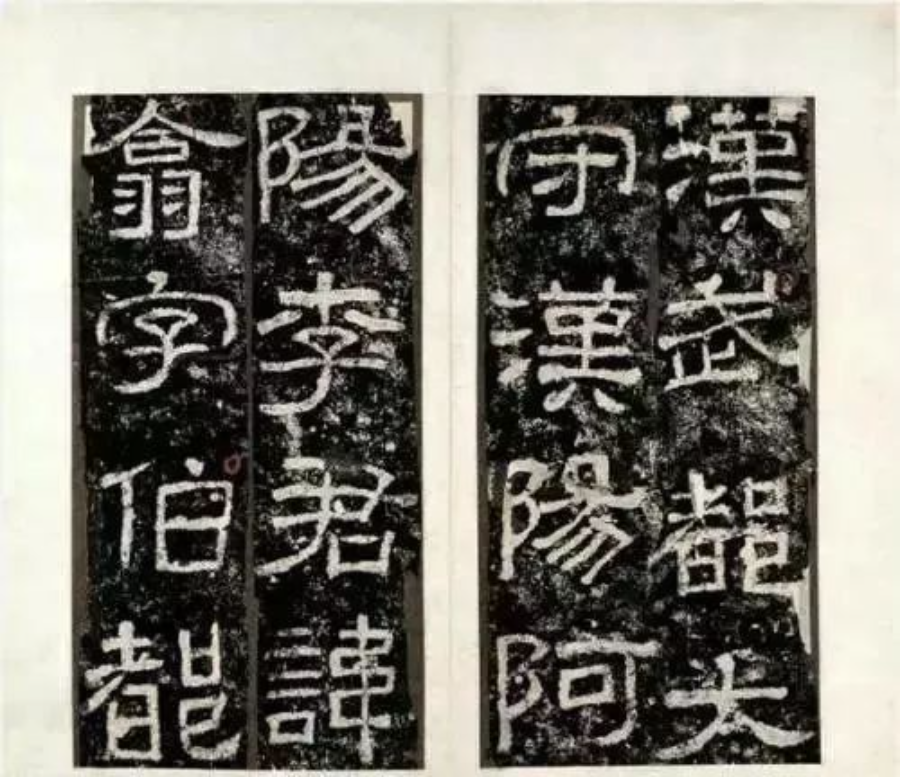 漢武都大
守漢陽阿
陽李君諱
翕字伯都